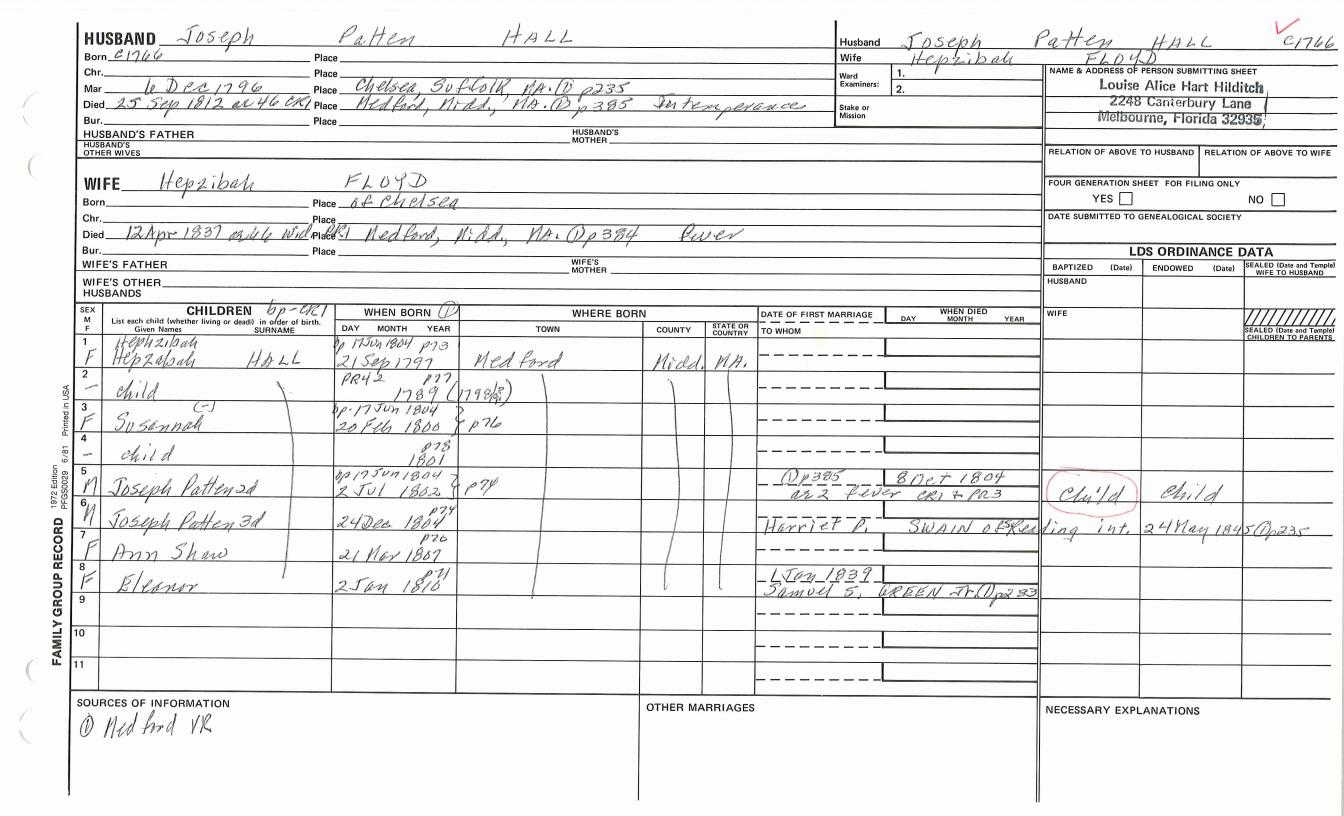 HUSBAND Joseph Patten HALL
Born c1766 Place
Chr. Place
Mar 6 Dec 1796 Place Chelsea, Suffolk, MA. ① p235
Died 25 Sep 1812 ae 46 CR1 Place Medford, Midd., MA. ① p385 Intemperance
Bur. Place
HUSBAND'S FATHER HUSBAND'S MOTHER
HUSBAND'S OTHER WIVES
WIFE Hepzibah FLOYD
Born Place of Chelsea
Chr. Place
Died 12 Apr 1837 ae 66 wid. CR1 Place Medford, Midd., MA. ① p384 fever
Bur. Place
WIFE'S FATHER WIFE'S MOTHER
WIFE'S OTHER HUSBANDS
Husband Joseph Patten HALL c1766
Wife Hepzibah FLOYD
Ward Examiners: 1.
2.
Stake or Mission
NAME & ADDRESS OF PERSON SUBMITTING SHEET
Louise Alice Hart Hilditch
2248 Canterbury Lane
Melbourne, Florida 32935
RELATION OF ABOVE TO HUSBAND RELATION OF ABOVE TO WIFE
FOUR GENERATION SHEET FOR FILING ONLY
YES NO
DATE SUBMITTED TO GENEALOGICAL SOCIETY
LDS ORDINANCE DATA
BAPTIZED (Date) ENDOWED (Date) SEALED (Date and Temple) WIFE TO HUSBAND
HUSBAND
WIFE
SEALED (Date and Temple) CHILDREN TO PARENTS
SEX M F CHILDREN bp-CR1 WHEN BORN ① WHERE BORN DATE OF FIRST MARRIAGE WHEN DIED
List each child (whether living or dead) in order of birth.
Given Names SURNAME DAY MONTH YEAR TOWN COUNTY STATE OR COUNTRY TO WHOM DAY MONTH YEAR
1 Hephzibah bp 17 Jun 1804 p73
F Hepzabah HALL 21 Sep 1797 Medford Midd. MA.
2 PR42 p77
- child 1789 (1798/9?)
3 (-) bp. 17 Jun 1804
F Susannah 20 Feb 1800 p76
4 p78
- child 1801
5 bp 17 Jun 1804 ① p385 8 Oct 1804
M Joseph Patten 2d 2 Jul 1802 p74 ae 2 fever CR1 + PR3 child child
6 p74
M Joseph Patten 3d 24 Dec 1804 Harriet P. SWAIN of Reading int. 24 May 1845 ① p235
7 p70
F Ann Shaw 21 Mar 1807
8 p71 1 Jan 1839
F Eleanor 2 Jan 1810 Samuel S. GREEN Jr. ① p233
9
10
11
SOURCES OF INFORMATION
① Medford VR
OTHER MARRIAGES
NECESSARY EXPLANATIONS
FAMILY GROUP RECORD 1972 Edition PFGS0029 6/81 Printed in USA